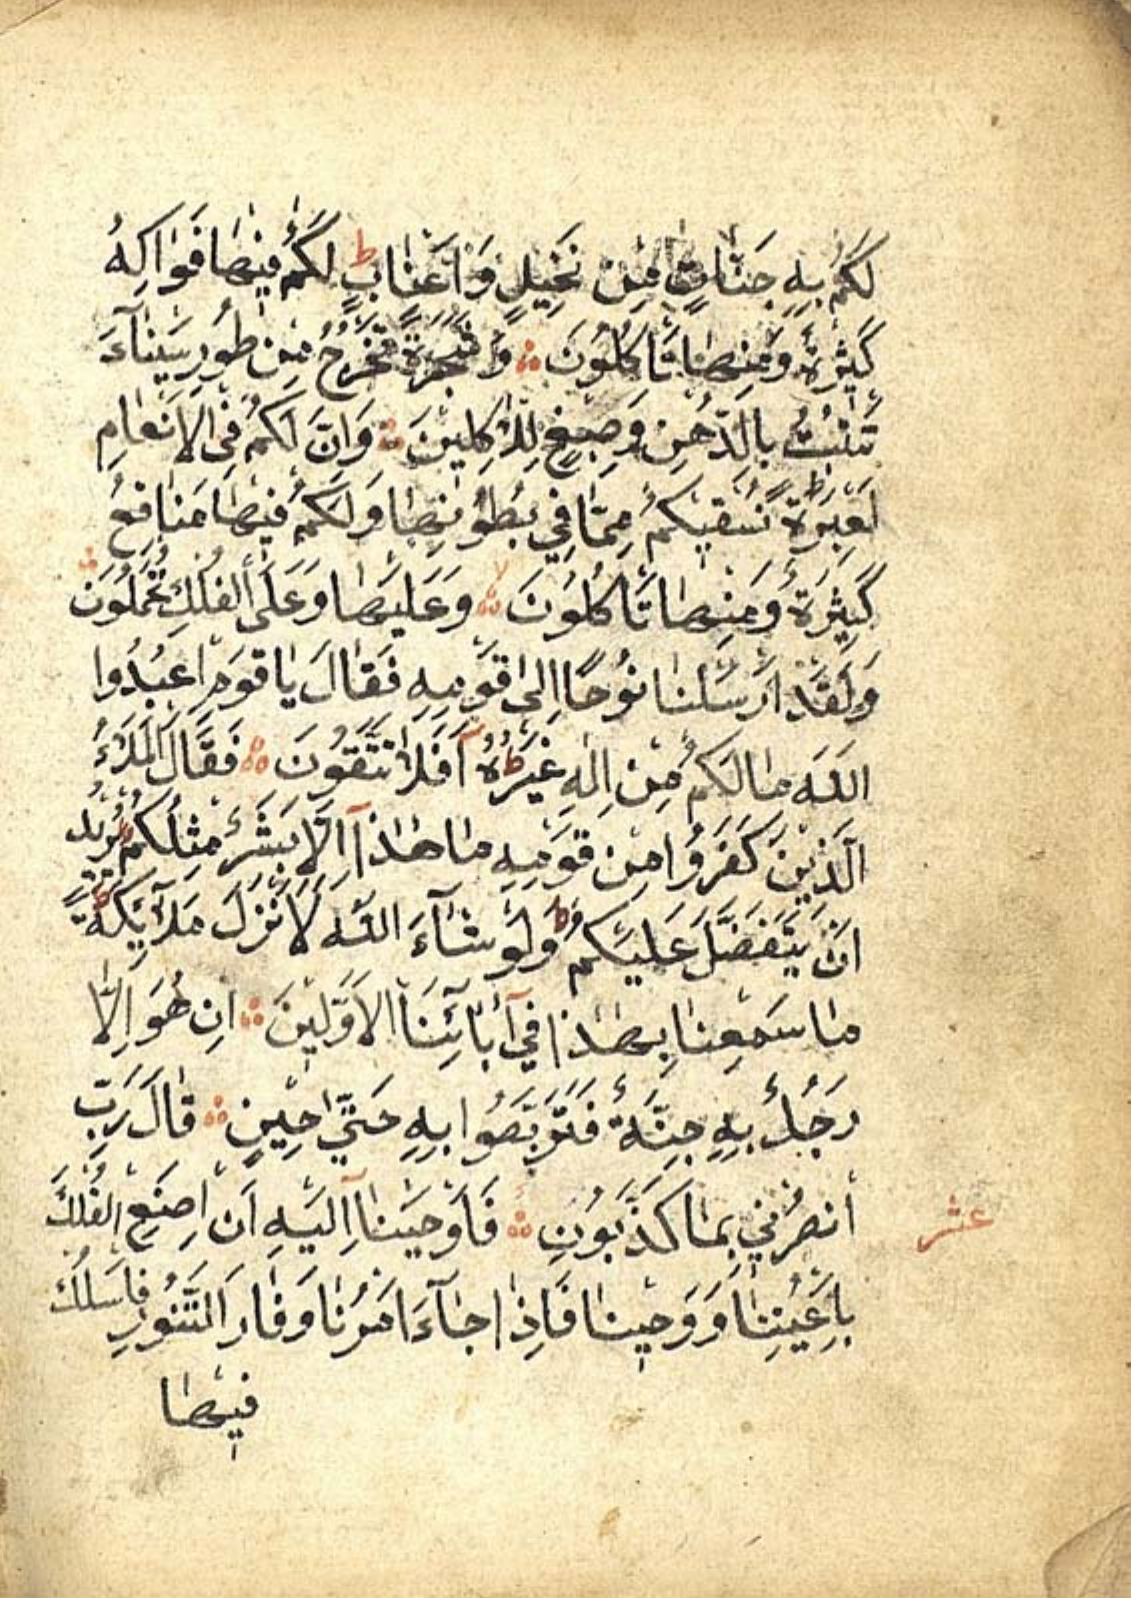 لَكُمْ بِهِ جَنَّاتٍ مِنْ نَخِيلٍ وَاَعْنَابٍ ط لَكُمْ فِيهَا فَوَاكِهُ
كَثِيرَةٌ وَمِنْهَا تَاْكُلُونَ وَشَجَرَةً تَخْرُجُ مِنْ طُورِ سَيْنَآءَ
تَنْبُتُ بِالدُّهْنِ وَصِبْغٍ لِلْاٰكِلِينَ وَاِنَّ لَكُمْ فِي الْاَنْعَامِ
لَعِبْرَةً ط نُسْقِيكُمْ مِمَّا فِي بُطُونِهَا وَلَكُمْ فِيهَا مَنَافِعُ
كَثِيرَةٌ وَمِنْهَا تَاْكُلُونَ لا وَعَلَيْهَا وَعَلَى الْفُلْكِ تُحْمَلُونَ
وَلَقَدْ اَرْسَلْنَا نُوحًا اِلٰى قَوْمِهِ فَقَالَ يَا قَوْمِ اعْبُدُوا
اللّٰهَ مَا لَكُمْ مِنْ اِلٰهٍ غَيْرُهُ ط اَفَلَا تَتَّقُونَ فَقَالَ الْمَلَؤُ
الَّذِينَ كَفَرُوا مِنْ قَوْمِهِ مَا هٰذَآ اِلَّا بَشَرٌ مِثْلُكُمْ يُرِيدُ
اَنْ يَتَفَضَّلَ عَلَيْكُمْ ط وَلَوْ شَآءَ اللّٰهُ لَاَنْزَلَ مَلَآئِكَةً ط
مَا سَمِعْنَا بِهٰذَا فِيٓ اٰبَآئِنَا الْاَوَّلِينَ اِنْ هُوَ اِلَّا
رَجُلٌ بِهِ جِنَّةٌ فَتَرَبَّصُوا بِهِ حَتّٰى حِينٍ قَالَ رَبِّ
انْصُرْنِي بِمَا كَذَّبُونِ فَاَوْحَيْنَآ اِلَيْهِ اَنِ اصْنَعِ الْفُلْكَ
عشر
بِاَعْيُنِنَا وَوَحْيِنَا فَاِذَا جَآءَ اَمْرُنَا وَفَارَ التَّنُّورُ فَاسْلُكْ
فِيهَا